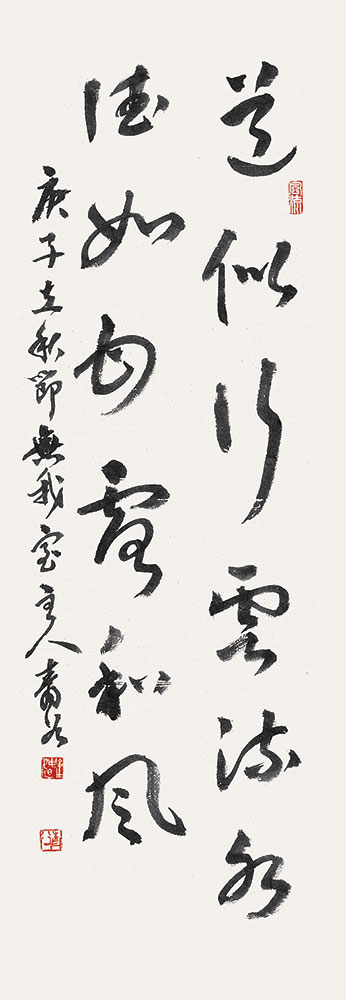 道似行雲流水
德如甘露和風
庚子立秋節無我室主人青谷